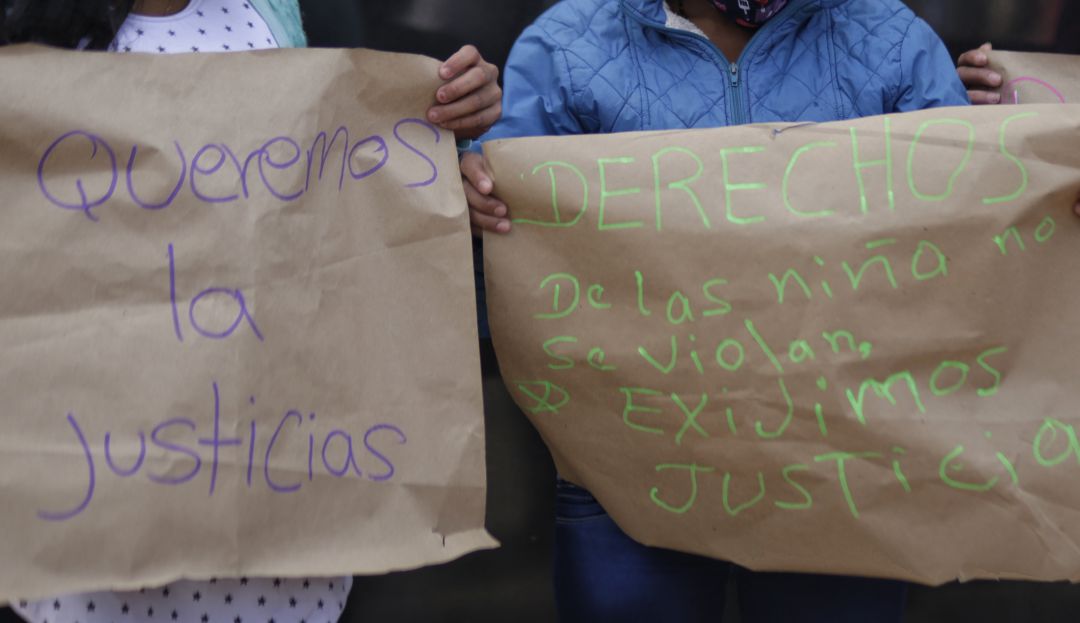 Queremos
la
justicias
DERECHOS
De las niña no
se violan,
EXIJIMOS
JUSTICIA